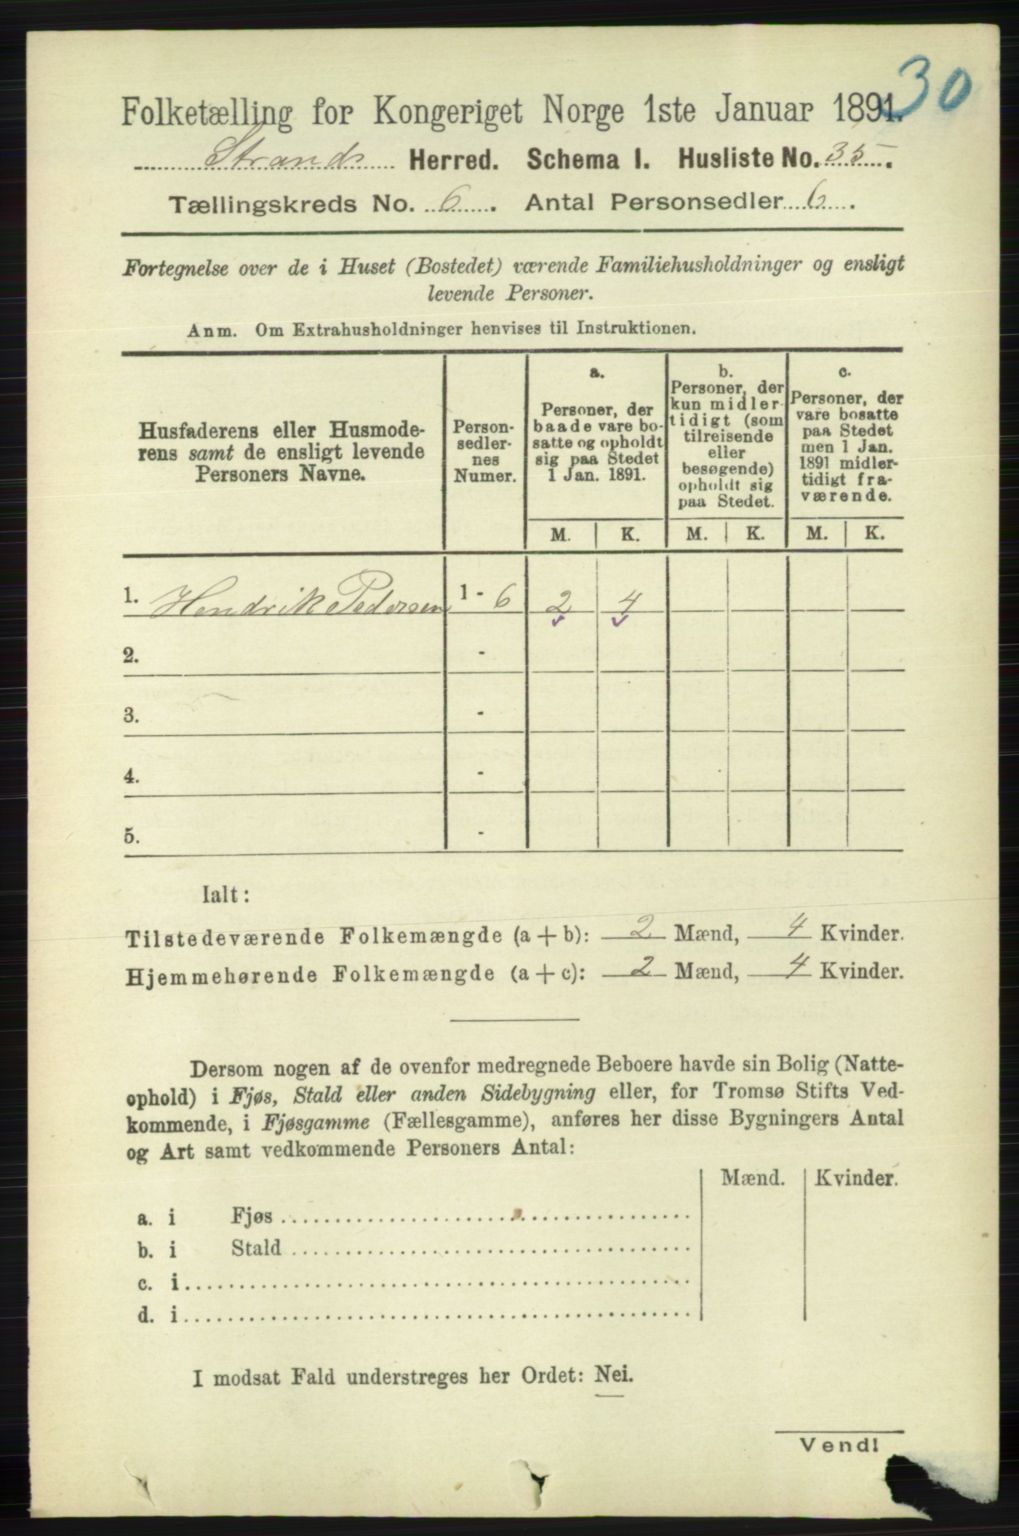 30
Folketælling for Kongeriget Norge 1ste Januar 1891.
Strands Herred. Schema 1. Husliste No. 35.
Tællingskreds No. 6. Antal Personsedler 6.
Fortegnelse over de i Huset (Bostedet) værende Familiehusholdninger og ensligt
levende Personer.
Anm. Om Extrahusholdninger henvises til Instruktionen.
Husfaderens eller Husmode-
rens samt de ensligt levende
Personers Navne.
Person-
sedler-
nes
Numer.
a.
Personer, der
baade vare bo-
satte og opholdt
sig paa Stedet
1 Jan. 1891.
b.
Personer, der
kun midler-
tidigt (som
tilreisende
eller
besøgende)
opholdt sig
paa Stedet.
c.
Personer, der
vare bosatte
paa Stedet
men 1 Jan.
1891 midler-
tidigt fra-
værende.
M. K. M. K. M. K.
1. Hendrik Pedersen 1 - 6 2 4
2. -
3. -
4. -
5. -
Ialt:
Tilstedeværende Folkemængde (a + b): 2 Mænd, 4 Kvinder.
Hjemmehørende Folkemængde (a + c): 2 Mænd, 4 Kvinder.
Dersom nogen af de ovenfor medregnede Beboere havde sin Bolig (Natte-
ophold) i Fjøs, Stald eller anden Sidebygning eller, for Tromsø Stifts Ved-
kommende, i Fjøsgamme (Fællesgamme), anføres her disse Bygningers Antal
og Art samt vedkommende Personers Antal:
Mænd. Kvinder.
a. i Fjøs
b. i Stald
c. i
d. i
I modsat Fald understreges her Ordet: Nei.
Vend!